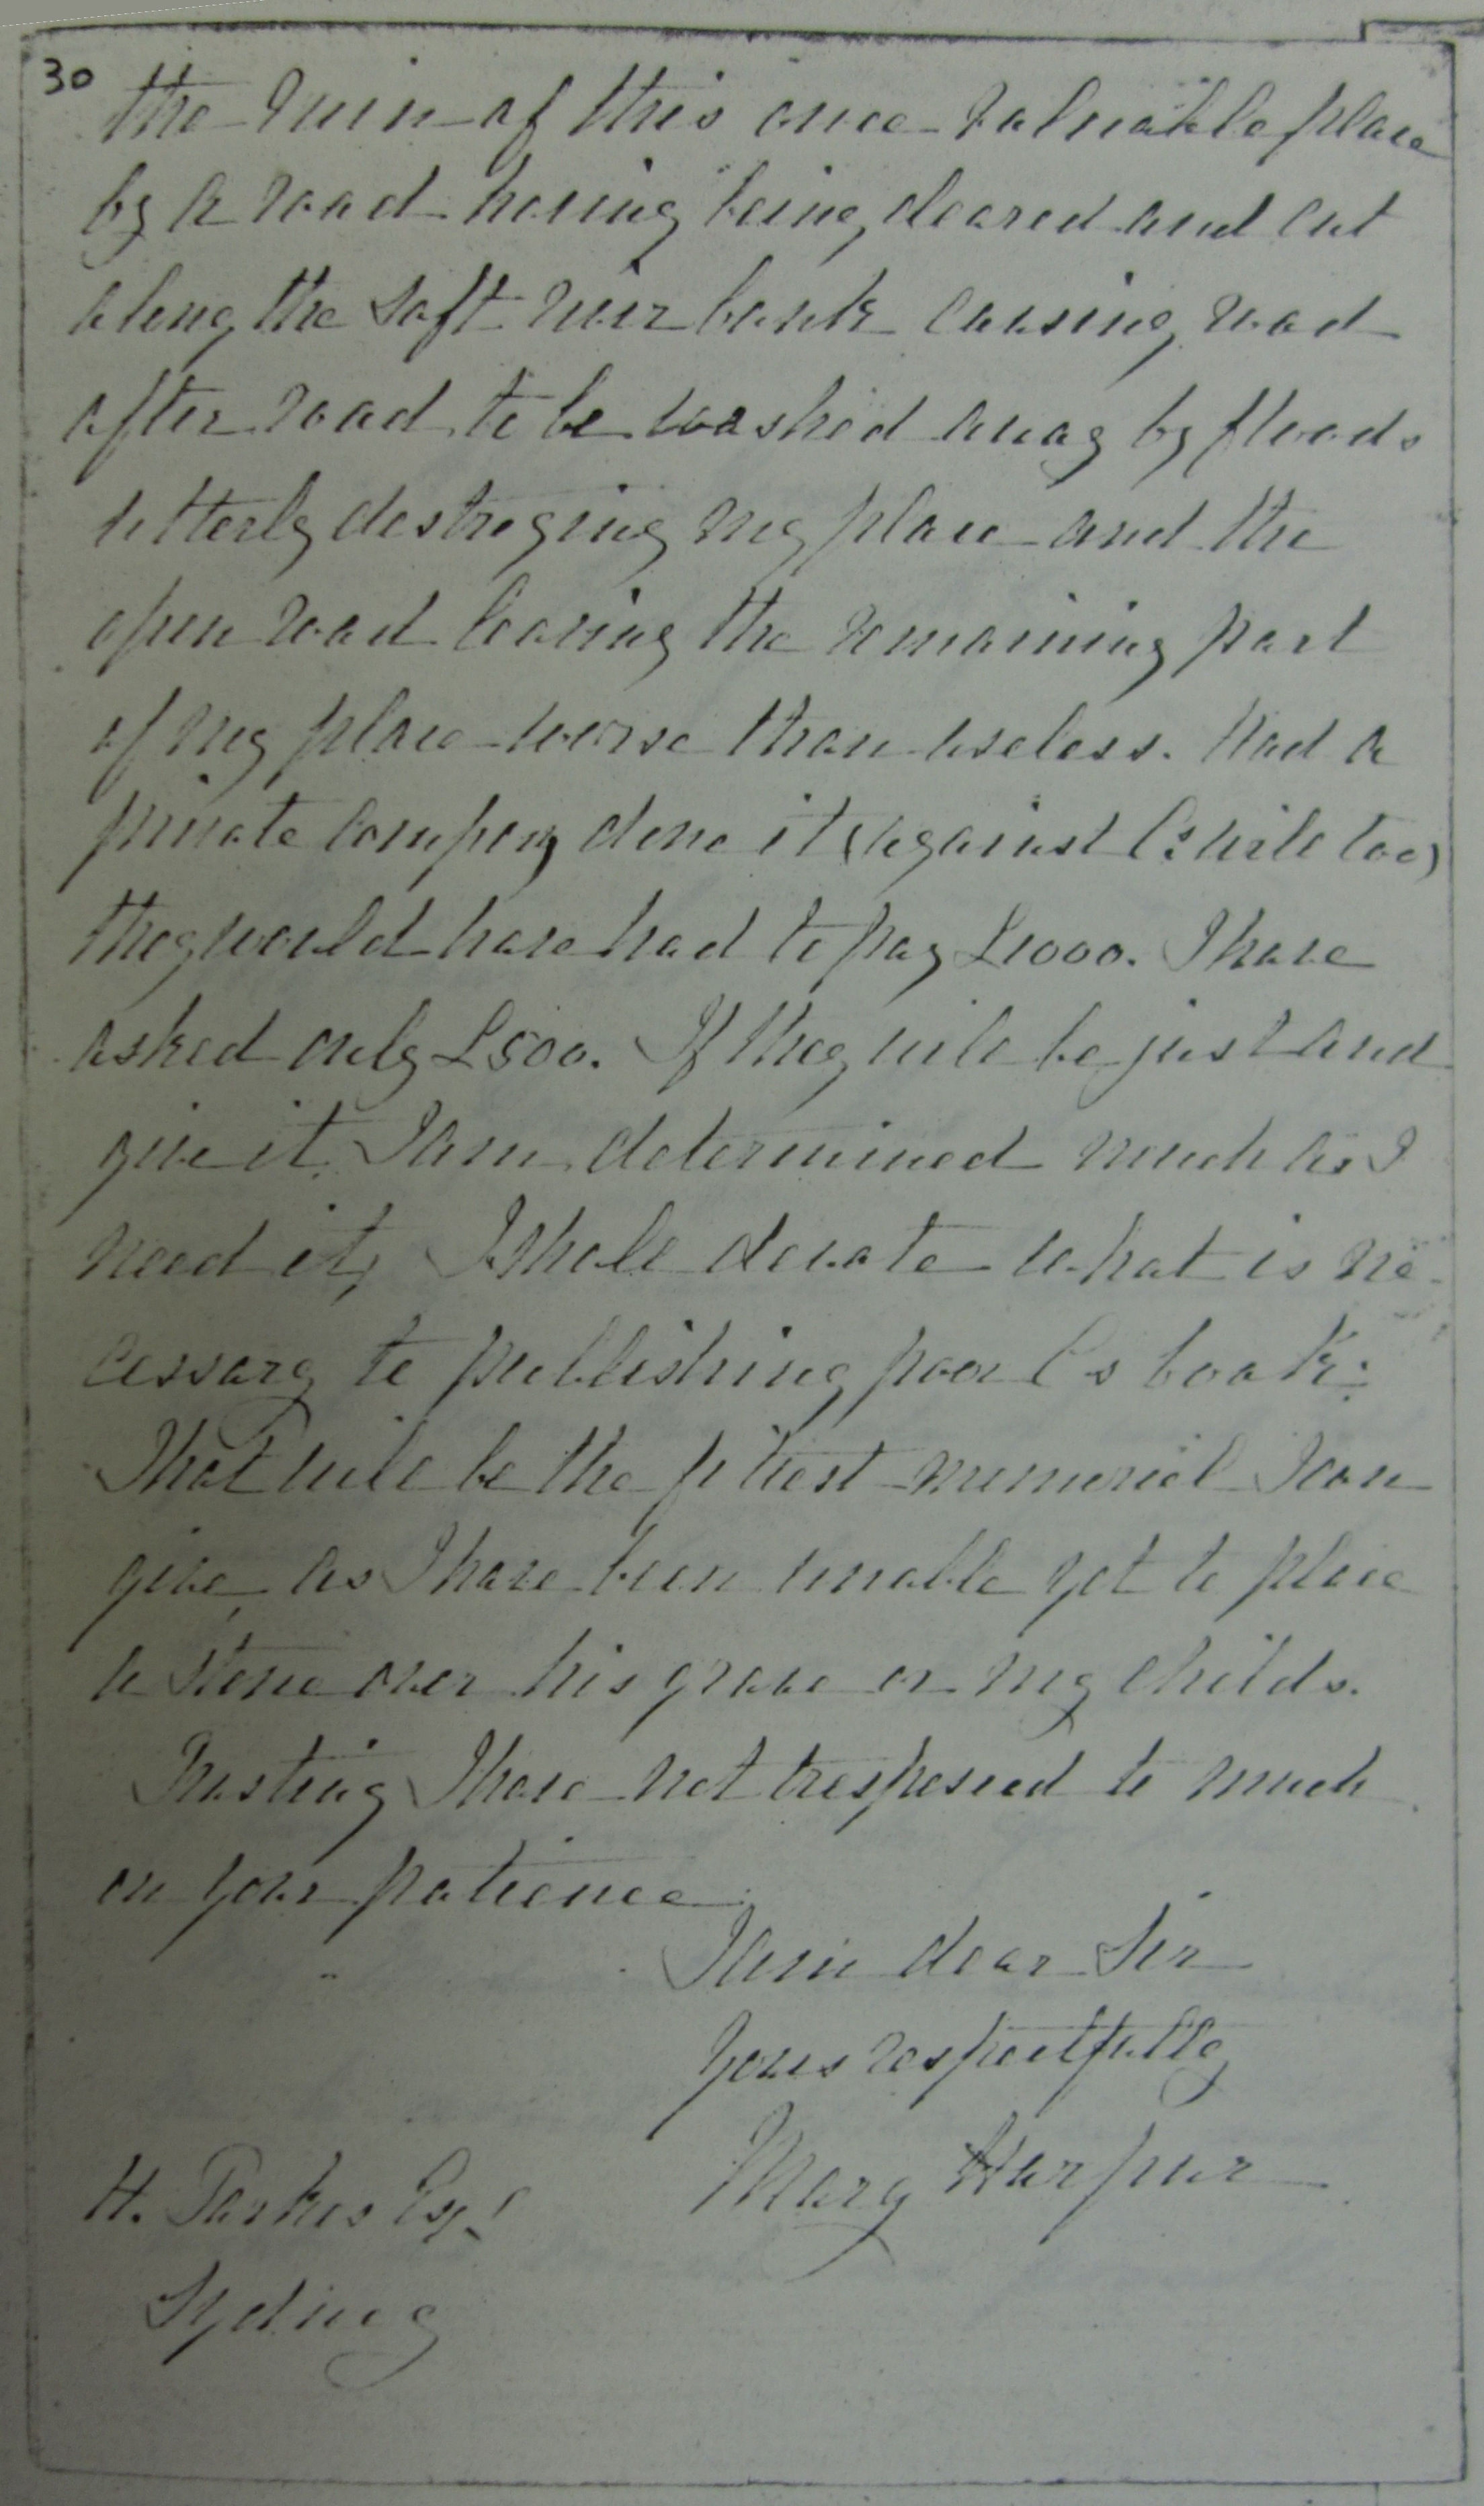 30
the ruin of this once valuable place
by a road having being cleared and cut
along the soft river bank causing road
after road to be washed away by floods
utterly destroying my place and the
open road leaving the remaining part
of my place worse than useless. Had a
private company done it (against C's will too)
they would have had to pay £1000. I have
asked only £500. If they will be just and
give it, I am determined much as I
need it, I shall devote what is ne-
cessary to publishing poor C's book.
That will be the fittest memorial I can
give, as I have been unable yet to place
a stone over his grave or my childs.
Trusting I have not trespassed to much
on your patience.
I am dear Sir
Yours respectfully
Mary Harpur
H. Parkes Esq.
Sydney